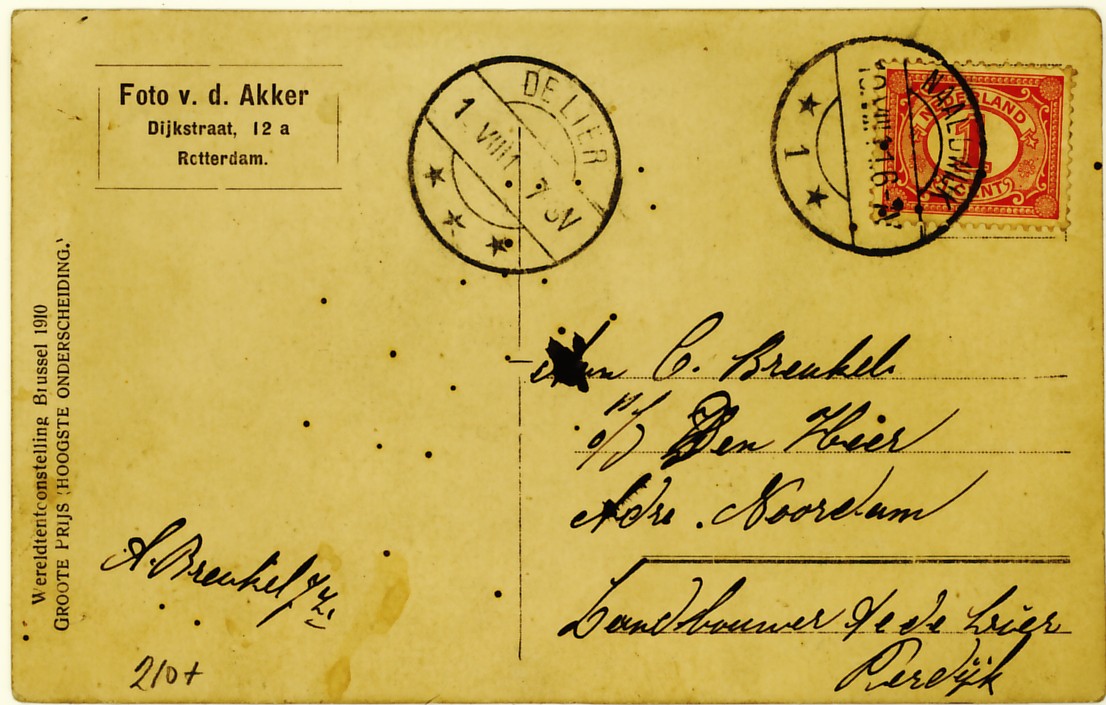 Foto v. d. Akker
Dijkstraat, 12 a
Rotterdam.
DE LIER
1 VIII 1 7-8V
NAALDWIJK
1
NEDERLAND
1
CENT
Wereldtentoonstelling Brussel 1910
GROOTE PRIJS (HOOGSTE ONDERSCHEIDING.)
Aan C. Breukel
p/a Den Heer
Adr. Noordam
Landbouwer te de Lier
A. Breukel Jz
210+